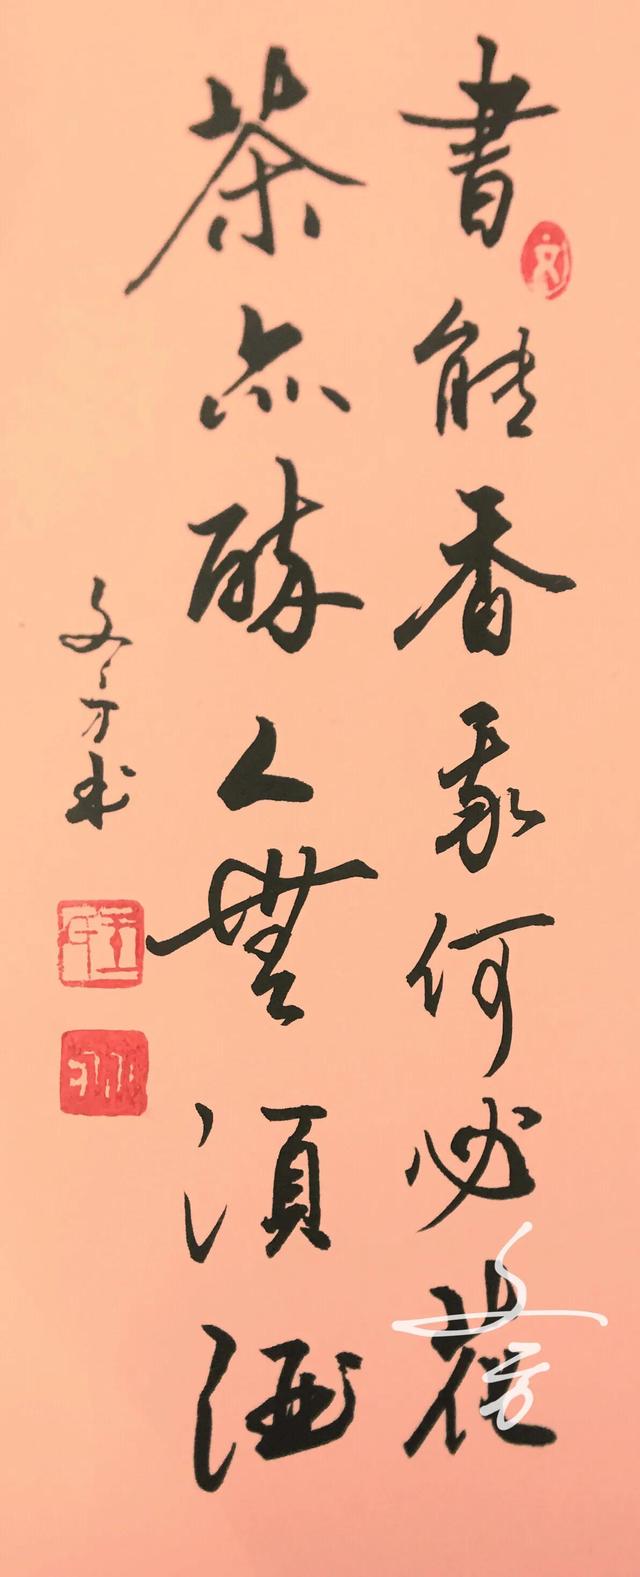 書能香我何必花
茶亦醉人無須酒
文方书
文方